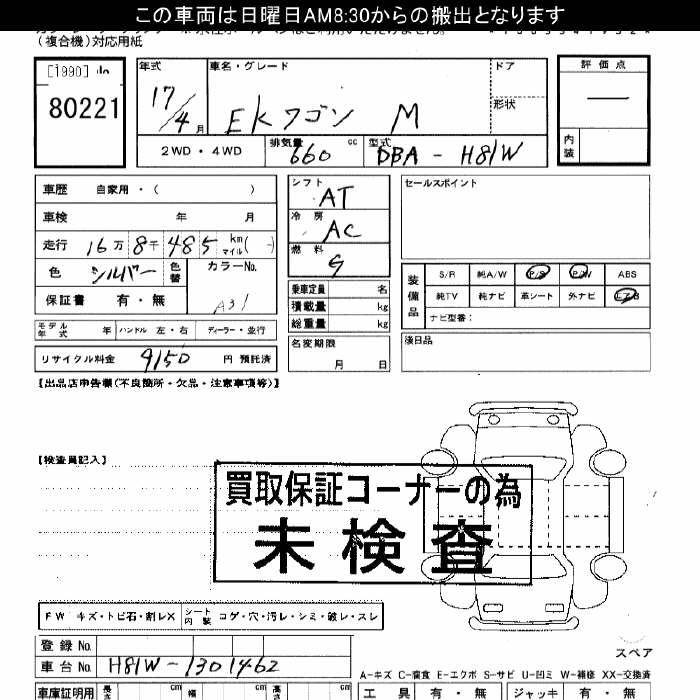 この車両は日曜日AM8:30からの搬出となります
(複合機)対応用紙
[1990]
80221
年式
17/4月
車名・グレード
EKワゴン M
ドア
形状
評価点
内装
2WD・4WD
排気量 660 cc
型式 DBA-H81W
車歴 自家用・( )
車検 年 月
走行 16万8千485 km マイル( )
色 シルバー 色替
カラーNo. A31
保証書 有・無
モデル年式 年 ハンドル 左・右 ディーラー・並行
リサイクル料金 9150 円 預託済
シフト AT
冷房 AC
燃料 G
乗車定員 名
積載量 kg
総重量 kg
名変期限 月 日
セールスポイント
装備品
S/R 純A/W P/S P/W ABS
純TV 純ナビ 革シート 外ナビ エアB
ナビ型番:
後日品
【出品店申告欄(不良箇所・欠品・注意事項等)】
【検査員記入】
買取保証コーナーの為
未検査
FW キズ・トビ石・割レX シート内装 コゲ・穴・汚レ・シミ・破レ・スレ
登録No.
車台No. H81W-1301462
スペア
A-キズ C-腐食 E-エクボ S-サビ U-凹ミ W-補修 XX-交換済
車庫証明用 長さ cm 幅 cm 高さ cm
工具 有・無 ジャッキ 有・無